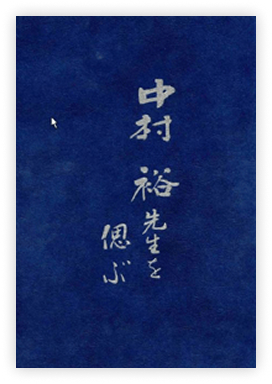 中村
裕先生を
偲ぶ